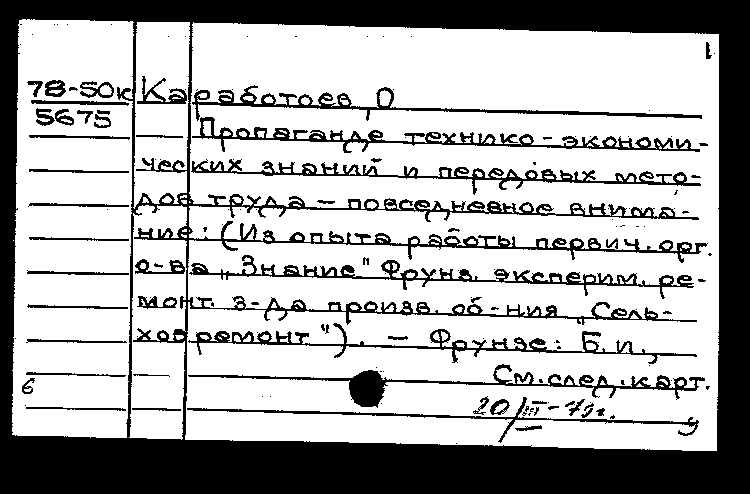 1
78-50к Каработоев, О
5675
Пропаганде технико-экономи-
ческих знаний и передовых мето-
дов труда – повседневное внима-
ние: (Из опыта работы первич. орг.
о-ва „Знание" Фрунз. эксперим. ре-
монт. з-да произв. об-ния „Сель-
хозремонт"). – Фрунзе: Б.и.,
См. след. карт.
6
20/III-79г.